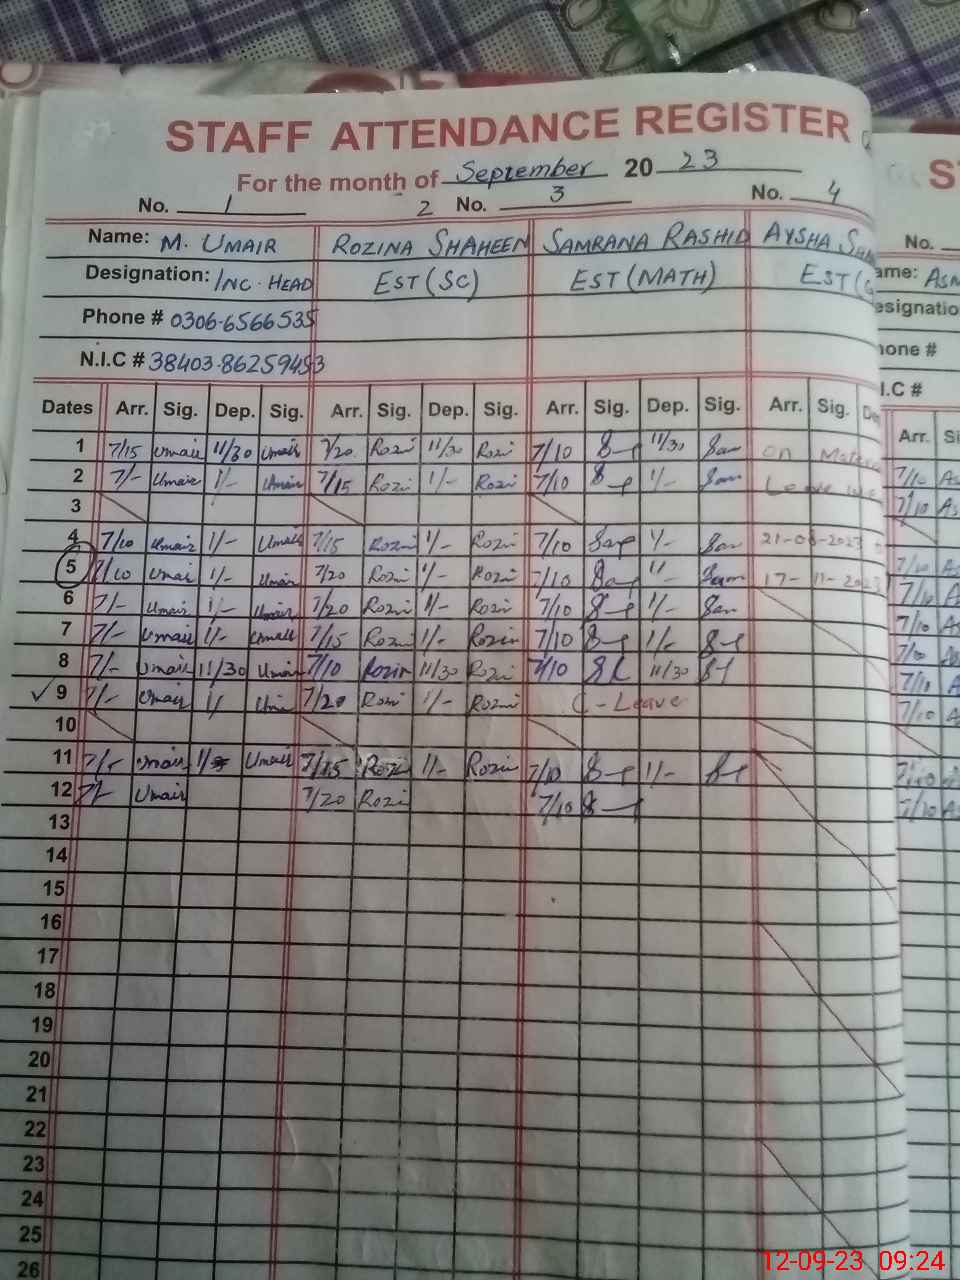 STAFF ATTENDANCE REGISTER
For the month of September 20 23
No. 1 2 No. 3 No. 4
Name: M. UMAIR ROZINA SHAHEEN SAMRANA RASHID AYSHA
Designation: INC. HEAD EST (SC) EST (MATH) EST
Phone # 0306-6566535
N.I.C # 38403-86259453
Dates Arr. Sig. Dep. Sig. Arr. Sig. Dep. Sig. Arr. Sig. Dep. Sig. Arr. Sig.
1 7/15 Umair 11/30 Umair 7/20 Rozi 11/30 Rozi 7/10 11/30 Sam on
2 7/- Umair 1/- Umair 7/15 Rozi 1/- Rozi 7/10 1/- Sam Leave
3
4 7/10 Umair 1/- Umair 7/15 Rozi 1/- Rozi 7/10 1/- Sam
5 7/10 Umair 1/- Umair 7/20 Rozi 1/- Rozi 7/10 Sam 17-11-2023
6 7/- Umair 1/- Umair 7/20 Rozi 1/- Rozi 7/10 1/- Sam
7 7/- Umair 1/- Umair 7/15 Rozi 1/- Rozin 7/10 1/-
8 7/- Umair 11/30 Umair 7/10 Rozin 11/30 Rozi 7/10 11/30
9 7/- Umair 7/20 Rozi 1/- Rozi C-Leave
10
11 Umair Umair 7/15 Rozi 1/- Rozin 7/10 1/-
12 7/- Umair 7/20 Rozi 7/10
13
14
15
16
17
18
19
20
21
22
23
24
25
26
No.
ASM
N.I.C #
Arr.
7/10 As
7/10 As
7/10
12-09-23 09:24